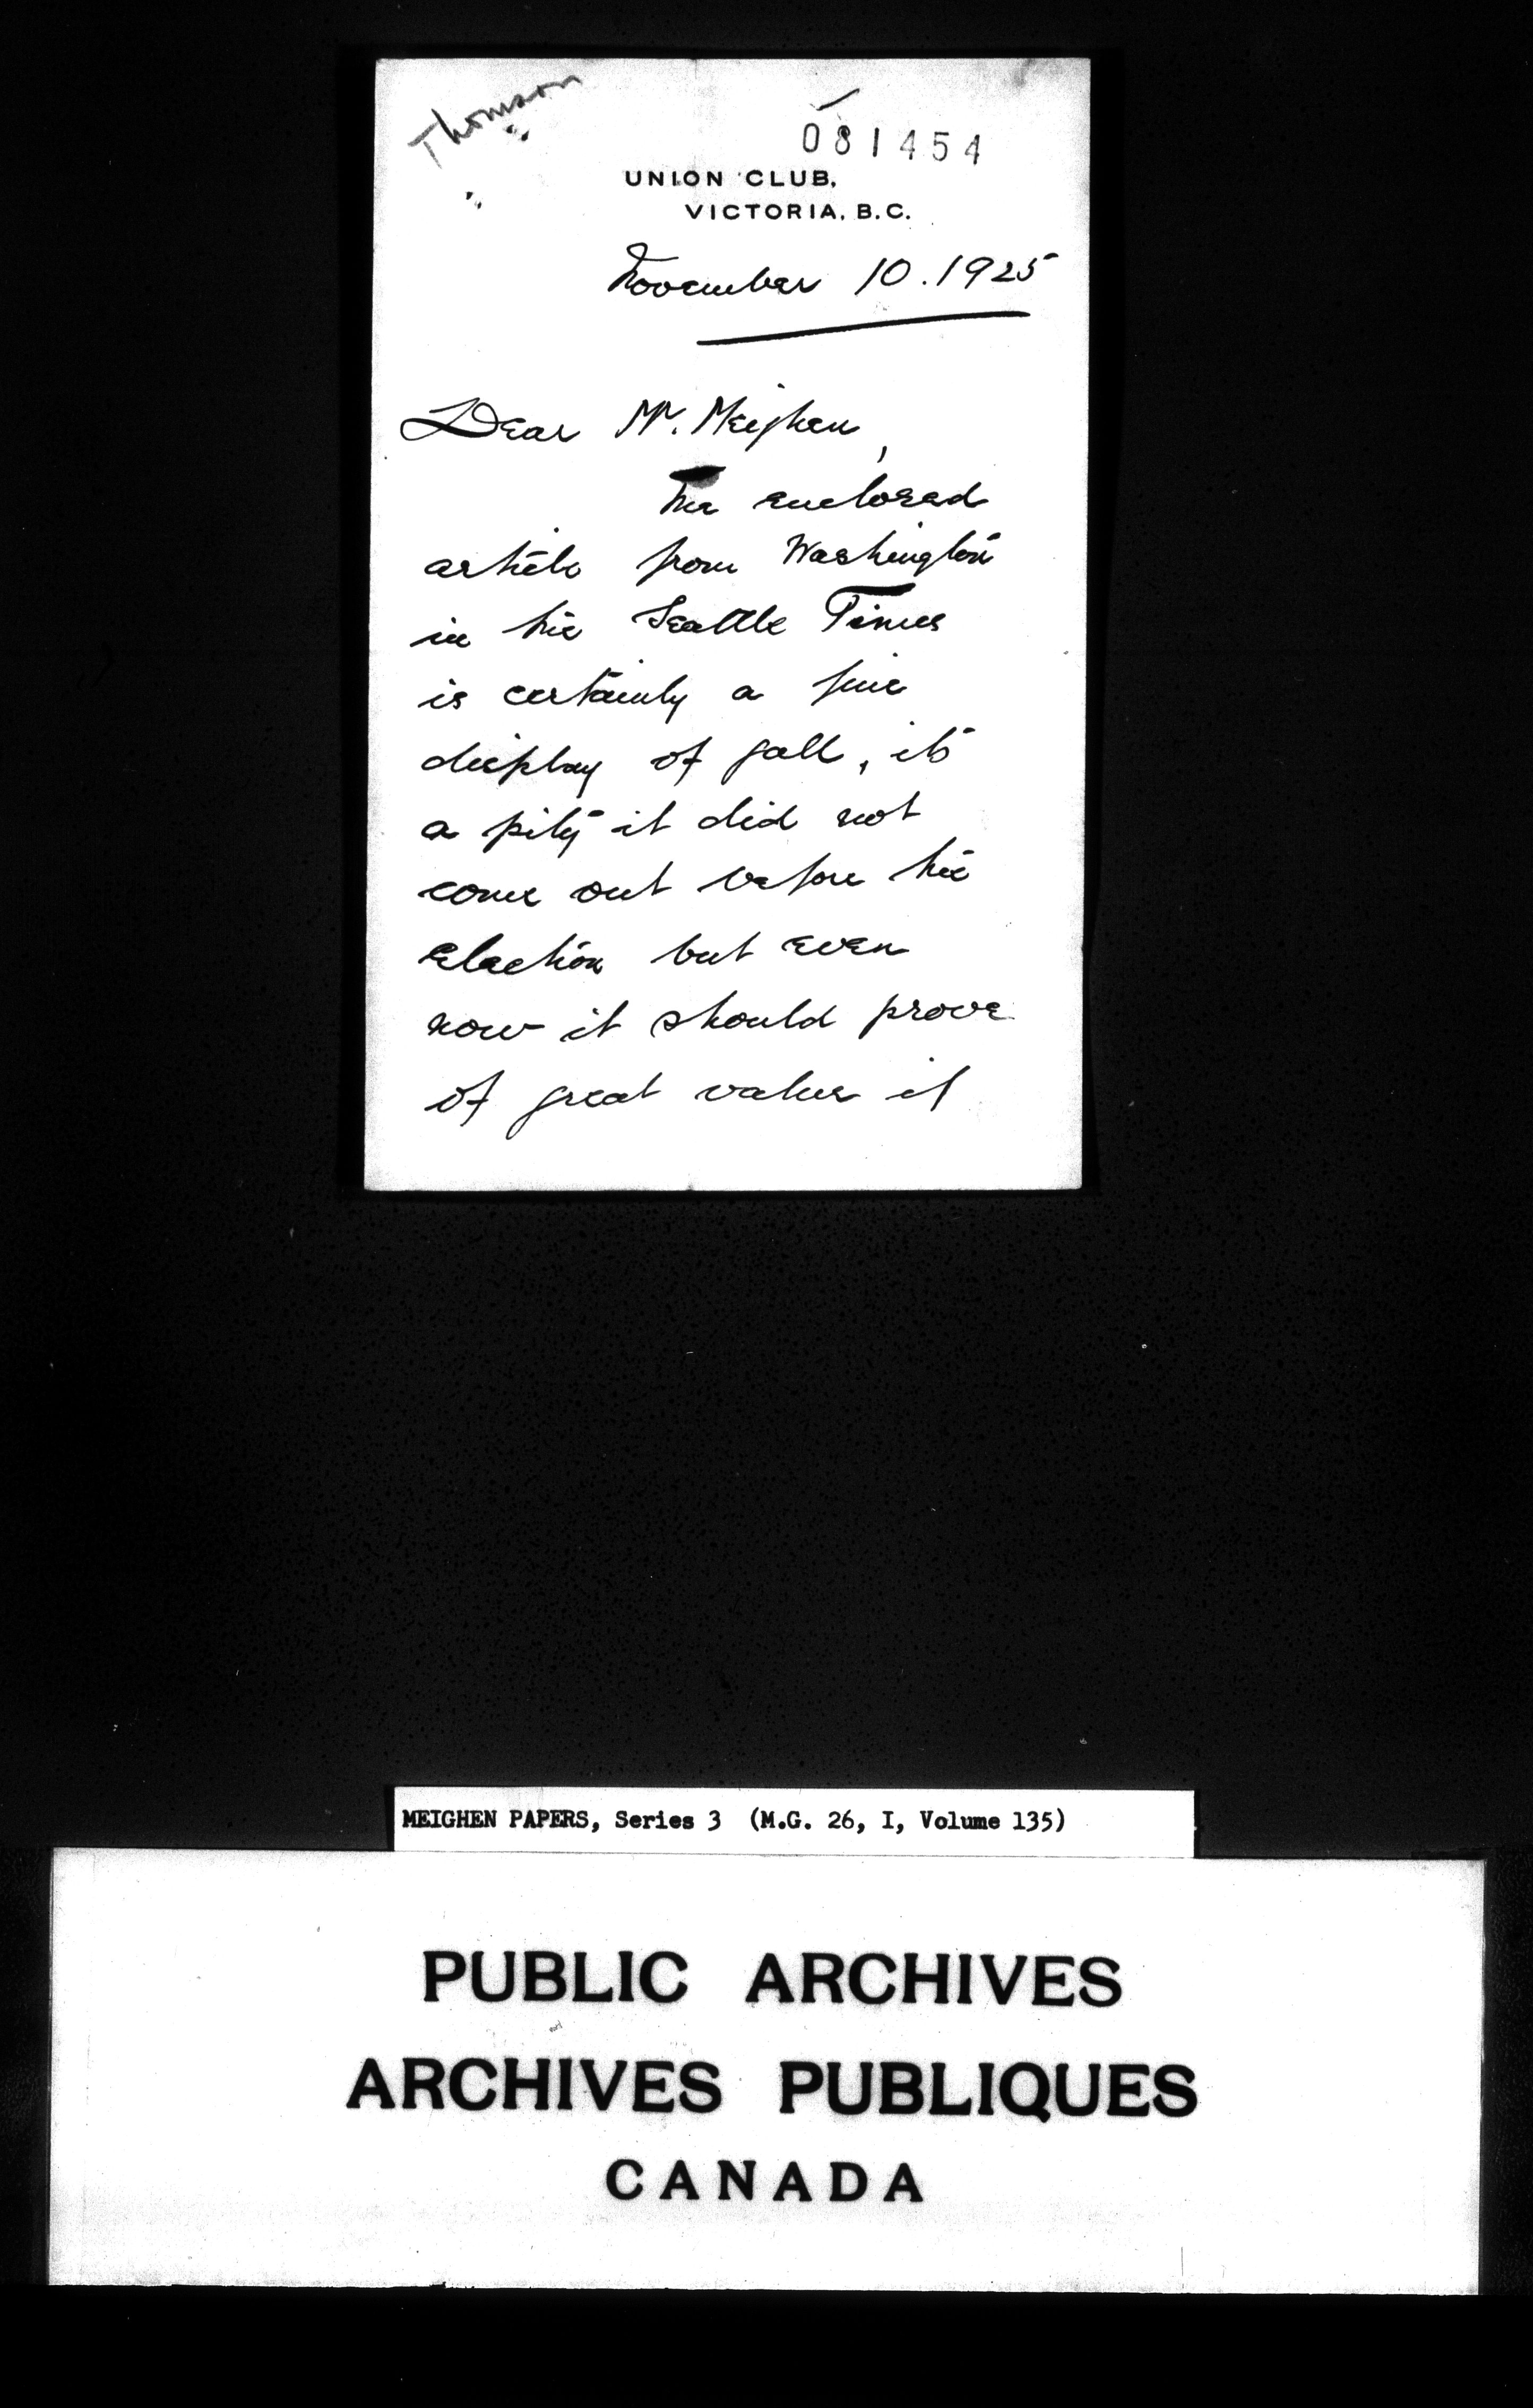 Thomson
081454
UNION CLUB,
VICTORIA, B.C.
November 10. 1925
Dear Mr. Meighen,
The enclosed
article from Washington
in the Seattle Times
is certainly a fine
display of gall, its
a pity it did not
come out before the
election but even
now it should prove
of great value if
MEIGHEN PAPERS, Series 3 (M.G. 26, I, Volume 135)
PUBLIC ARCHIVES
ARCHIVES PUBLIQUES
CANADA